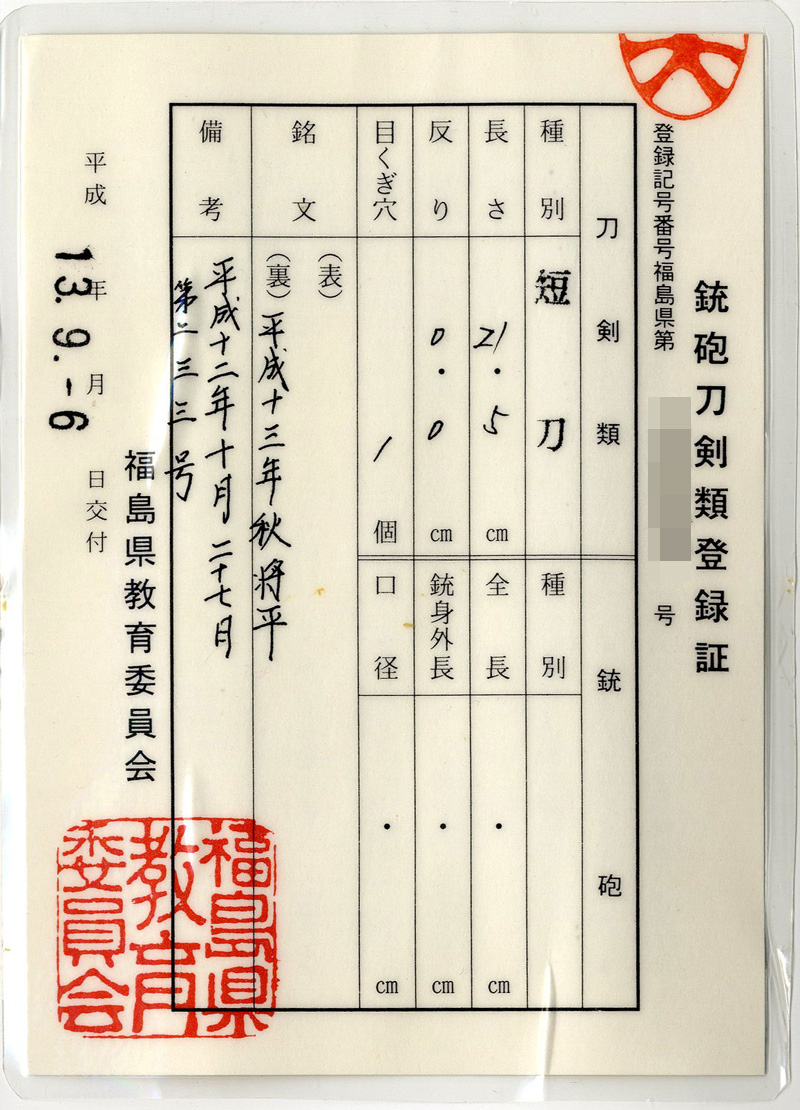 銃砲刀剣類登録証
登録記号番号福島県第 号
刀剣類
銃砲
種別 短刀
種別
長さ 21.5 cm
全長 . cm
反り 0.0 cm
銃身外長 . cm
目くぎ穴 1 個
口径 . cm
銘文
(表)
(裏) 平成十三年秋将平
備考 平成十二年十月二十七日
第二三三号
福島県教育委員会
平成 13年 9.月 -6 日交付
福島県
教育
委員会